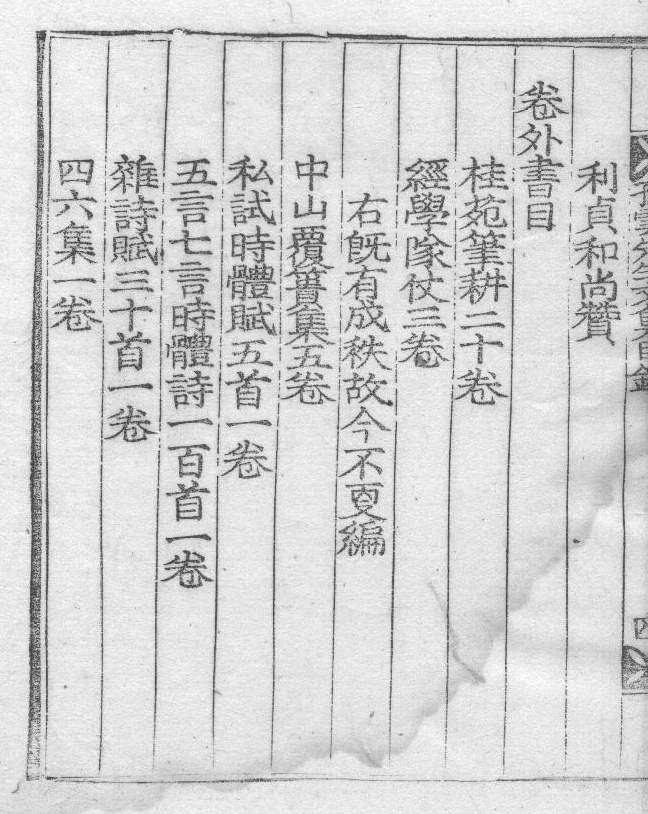 孤雲先生文集目錄
四
利貞和尚贊
卷外書目
桂苑筆耕二十卷
經學隊仗三卷
右旣有成秩故今不更編
中山覆簣集五卷
私試時體賦五首一卷
五言七言時體詩一百首一卷
雜詩賦三十首一卷
四六集一卷